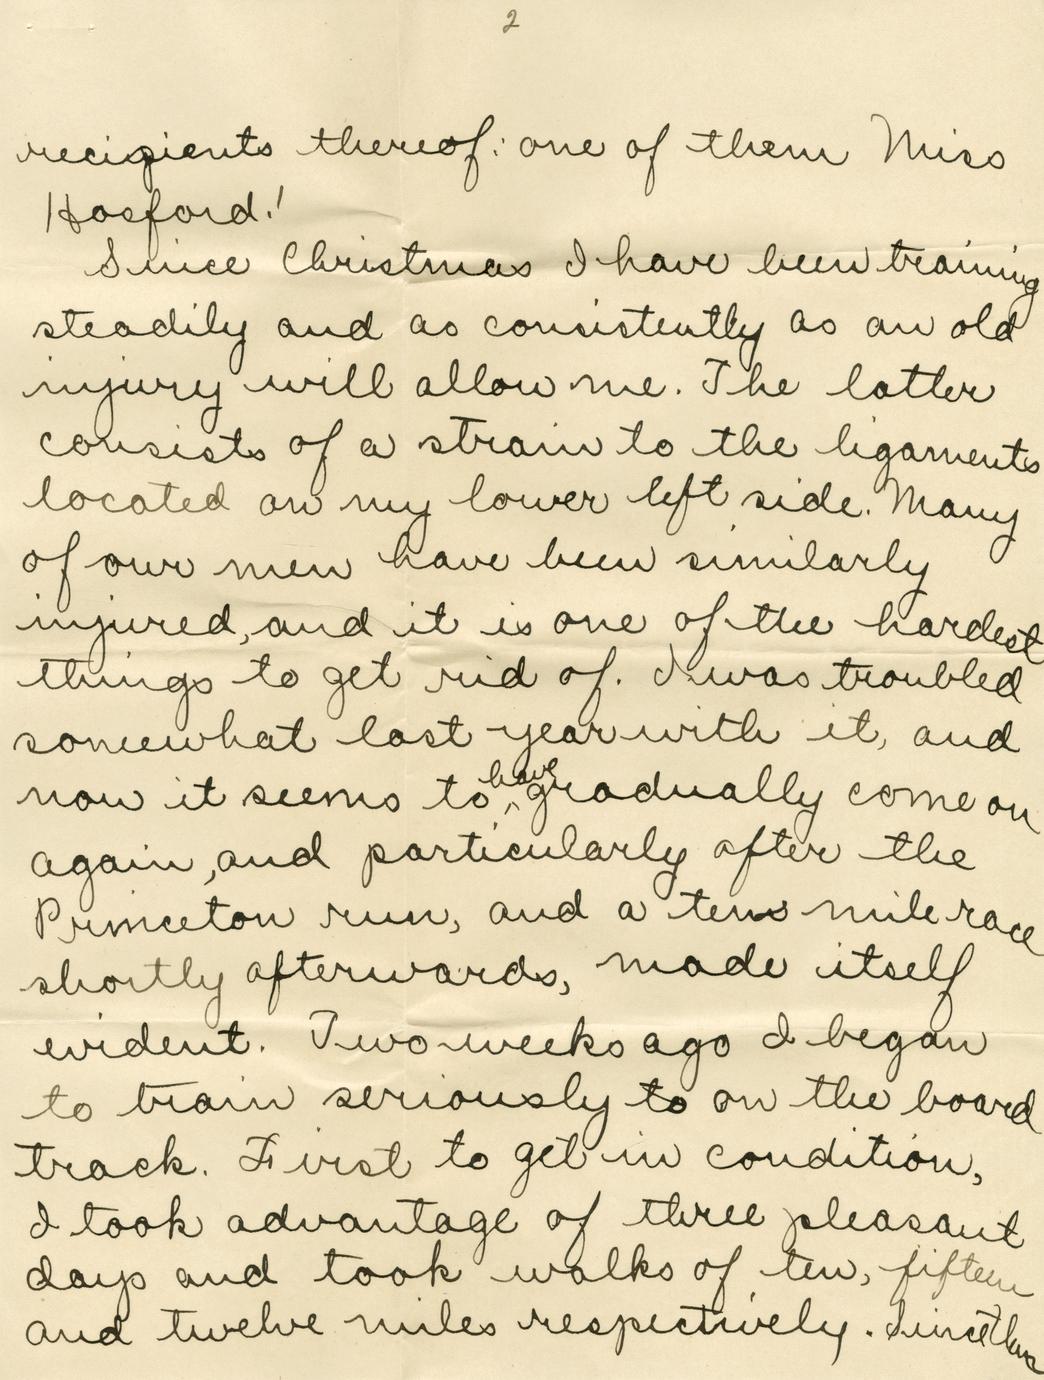 2
recipients thereof: one of them Miss
Hosford!
Since Christmas I have been training
steadily and as consistently as an old
injury will allow me. The latter
consists of a strain to the ligaments
located on my lower left side. Many
of our men have been similarly
injured, and it is one of the hardest
things to get rid of. I was troubled
somewhat last year with it, and
now it seems to have gradually come on
again, and particularly after the
Princeton run, and a ten mile race
shortly afterwards, made itself
evident. Two weeks ago I began
to train seriously to on the board
track. First to get in condition,
I took advantage of three pleasant
days and took walks of ten, fifteen
and twelve miles respectively. Since then